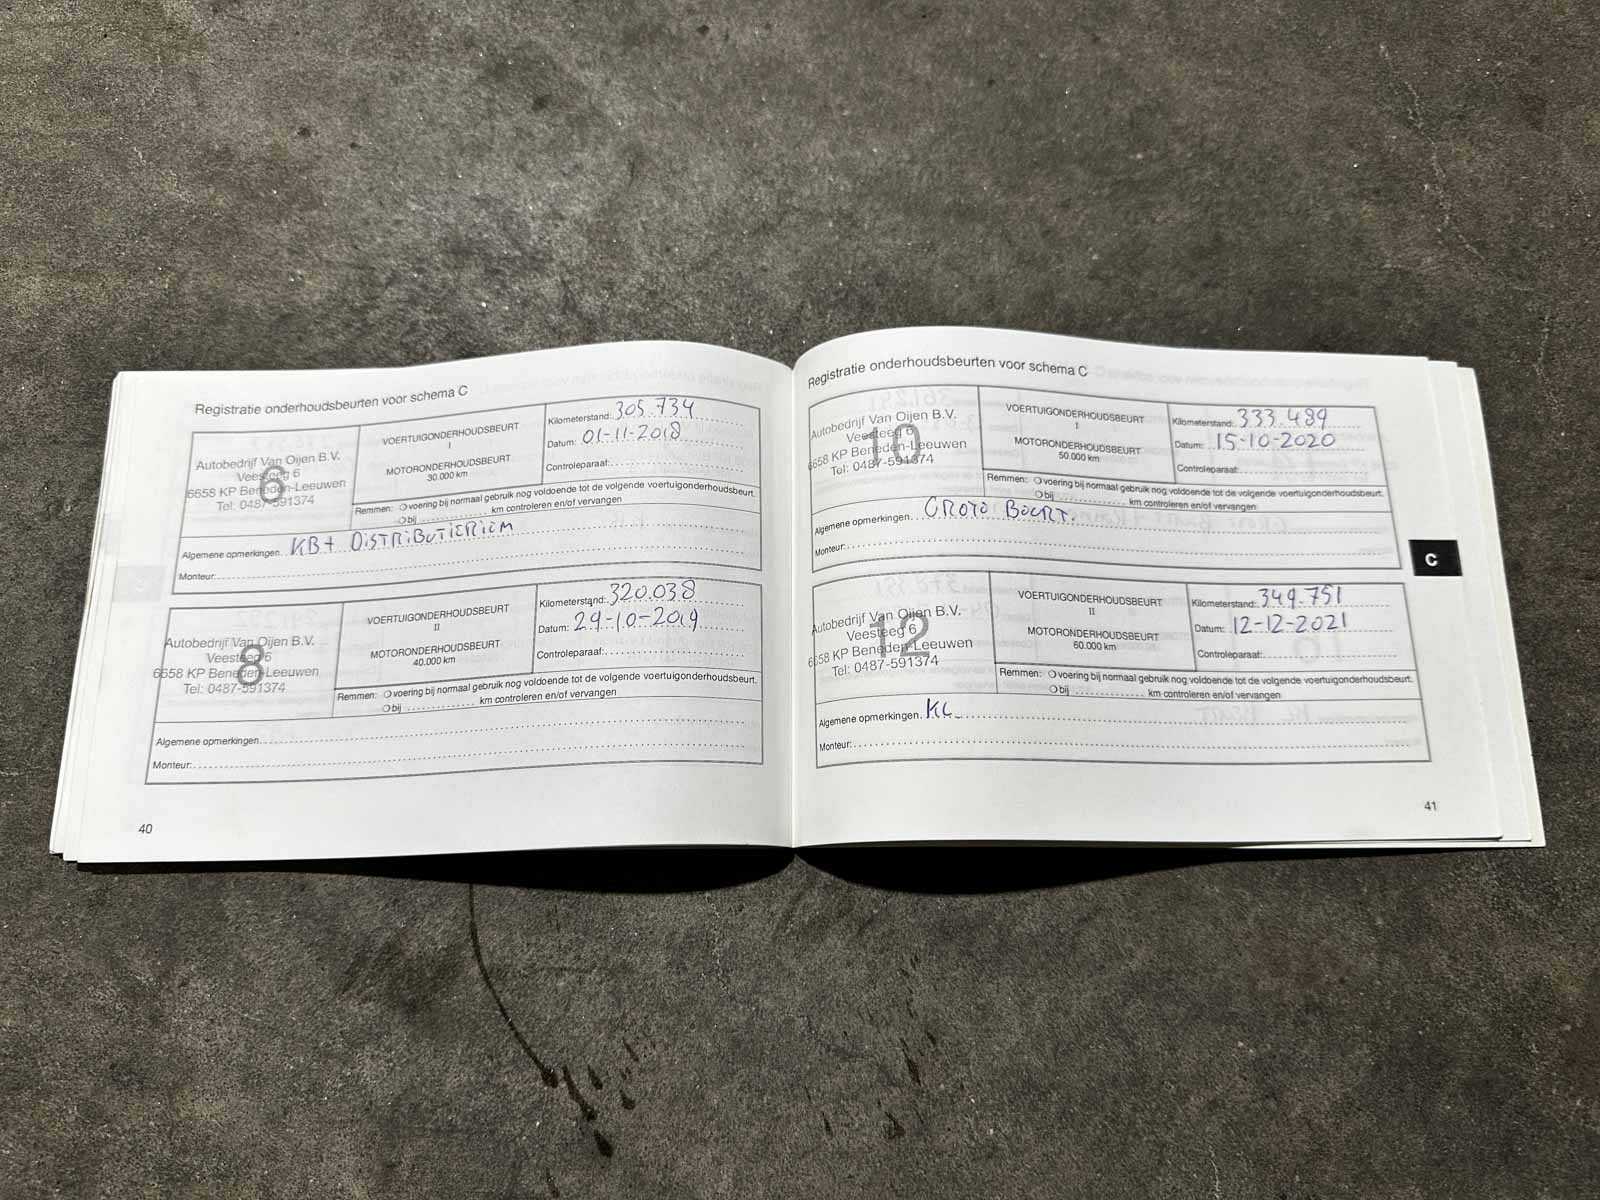 Registratie onderhoudsbeurten voor schema C
6
Autobedrijf Van Oijen B.V.
Veesteeg 6
6658 KP Beneden-Leeuwen
Tel: 0487-591374
VOERTUIGONDERHOUDSBEURT
I
MOTORONDERHOUDSBEURT
30.000 km
Kilometerstand: 305.734
Datum: 01-11-2018
Controleparaaf:
Remmen: voering bij normaal gebruik nog voldoende tot de volgende voertuigonderhoudsbeurt.
bij km controleren en/of vervangen
Algemene opmerkingen. KB+ DISTRIBUTIERIEM
Monteur:
8
Autobedrijf Van Oijen B.V.
Veesteeg 6
6658 KP Beneden-Leeuwen
Tel: 0487-591374
VOERTUIGONDERHOUDSBEURT
II
MOTORONDERHOUDSBEURT
40.000 km
Kilometerstand: 320.038
Datum: 29-10-2019
Controleparaaf:
Remmen: voering bij normaal gebruik nog voldoende tot de volgende voertuigonderhoudsbeurt.
bij km controleren en/of vervangen
Algemene opmerkingen.
Monteur:
40
Registratie onderhoudsbeurten voor schema C
10
Autobedrijf Van Oijen B.V.
Veesteeg 6
6658 KP Beneden-Leeuwen
Tel: 0487-591374
VOERTUIGONDERHOUDSBEURT
I
MOTORONDERHOUDSBEURT
50.000 km
Kilometerstand: 333.489
Datum: 15-10-2020
Controleparaaf:
Remmen: voering bij normaal gebruik nog voldoende tot de volgende voertuigonderhoudsbeurt.
bij km controleren en/of vervangen
Algemene opmerkingen. GROTO BEURT.
Monteur:
12
Autobedrijf Van Oijen B.V.
Veesteeg 6
6658 KP Beneden-Leeuwen
Tel: 0487-591374
VOERTUIGONDERHOUDSBEURT
II
MOTORONDERHOUDSBEURT
60.000 km
Kilometerstand: 349.751
Datum: 12-12-2021
Controleparaaf:
Remmen: voering bij normaal gebruik nog voldoende tot de volgende voertuigonderhoudsbeurt.
bij km controleren en/of vervangen
Algemene opmerkingen. KL
Monteur:
C
41